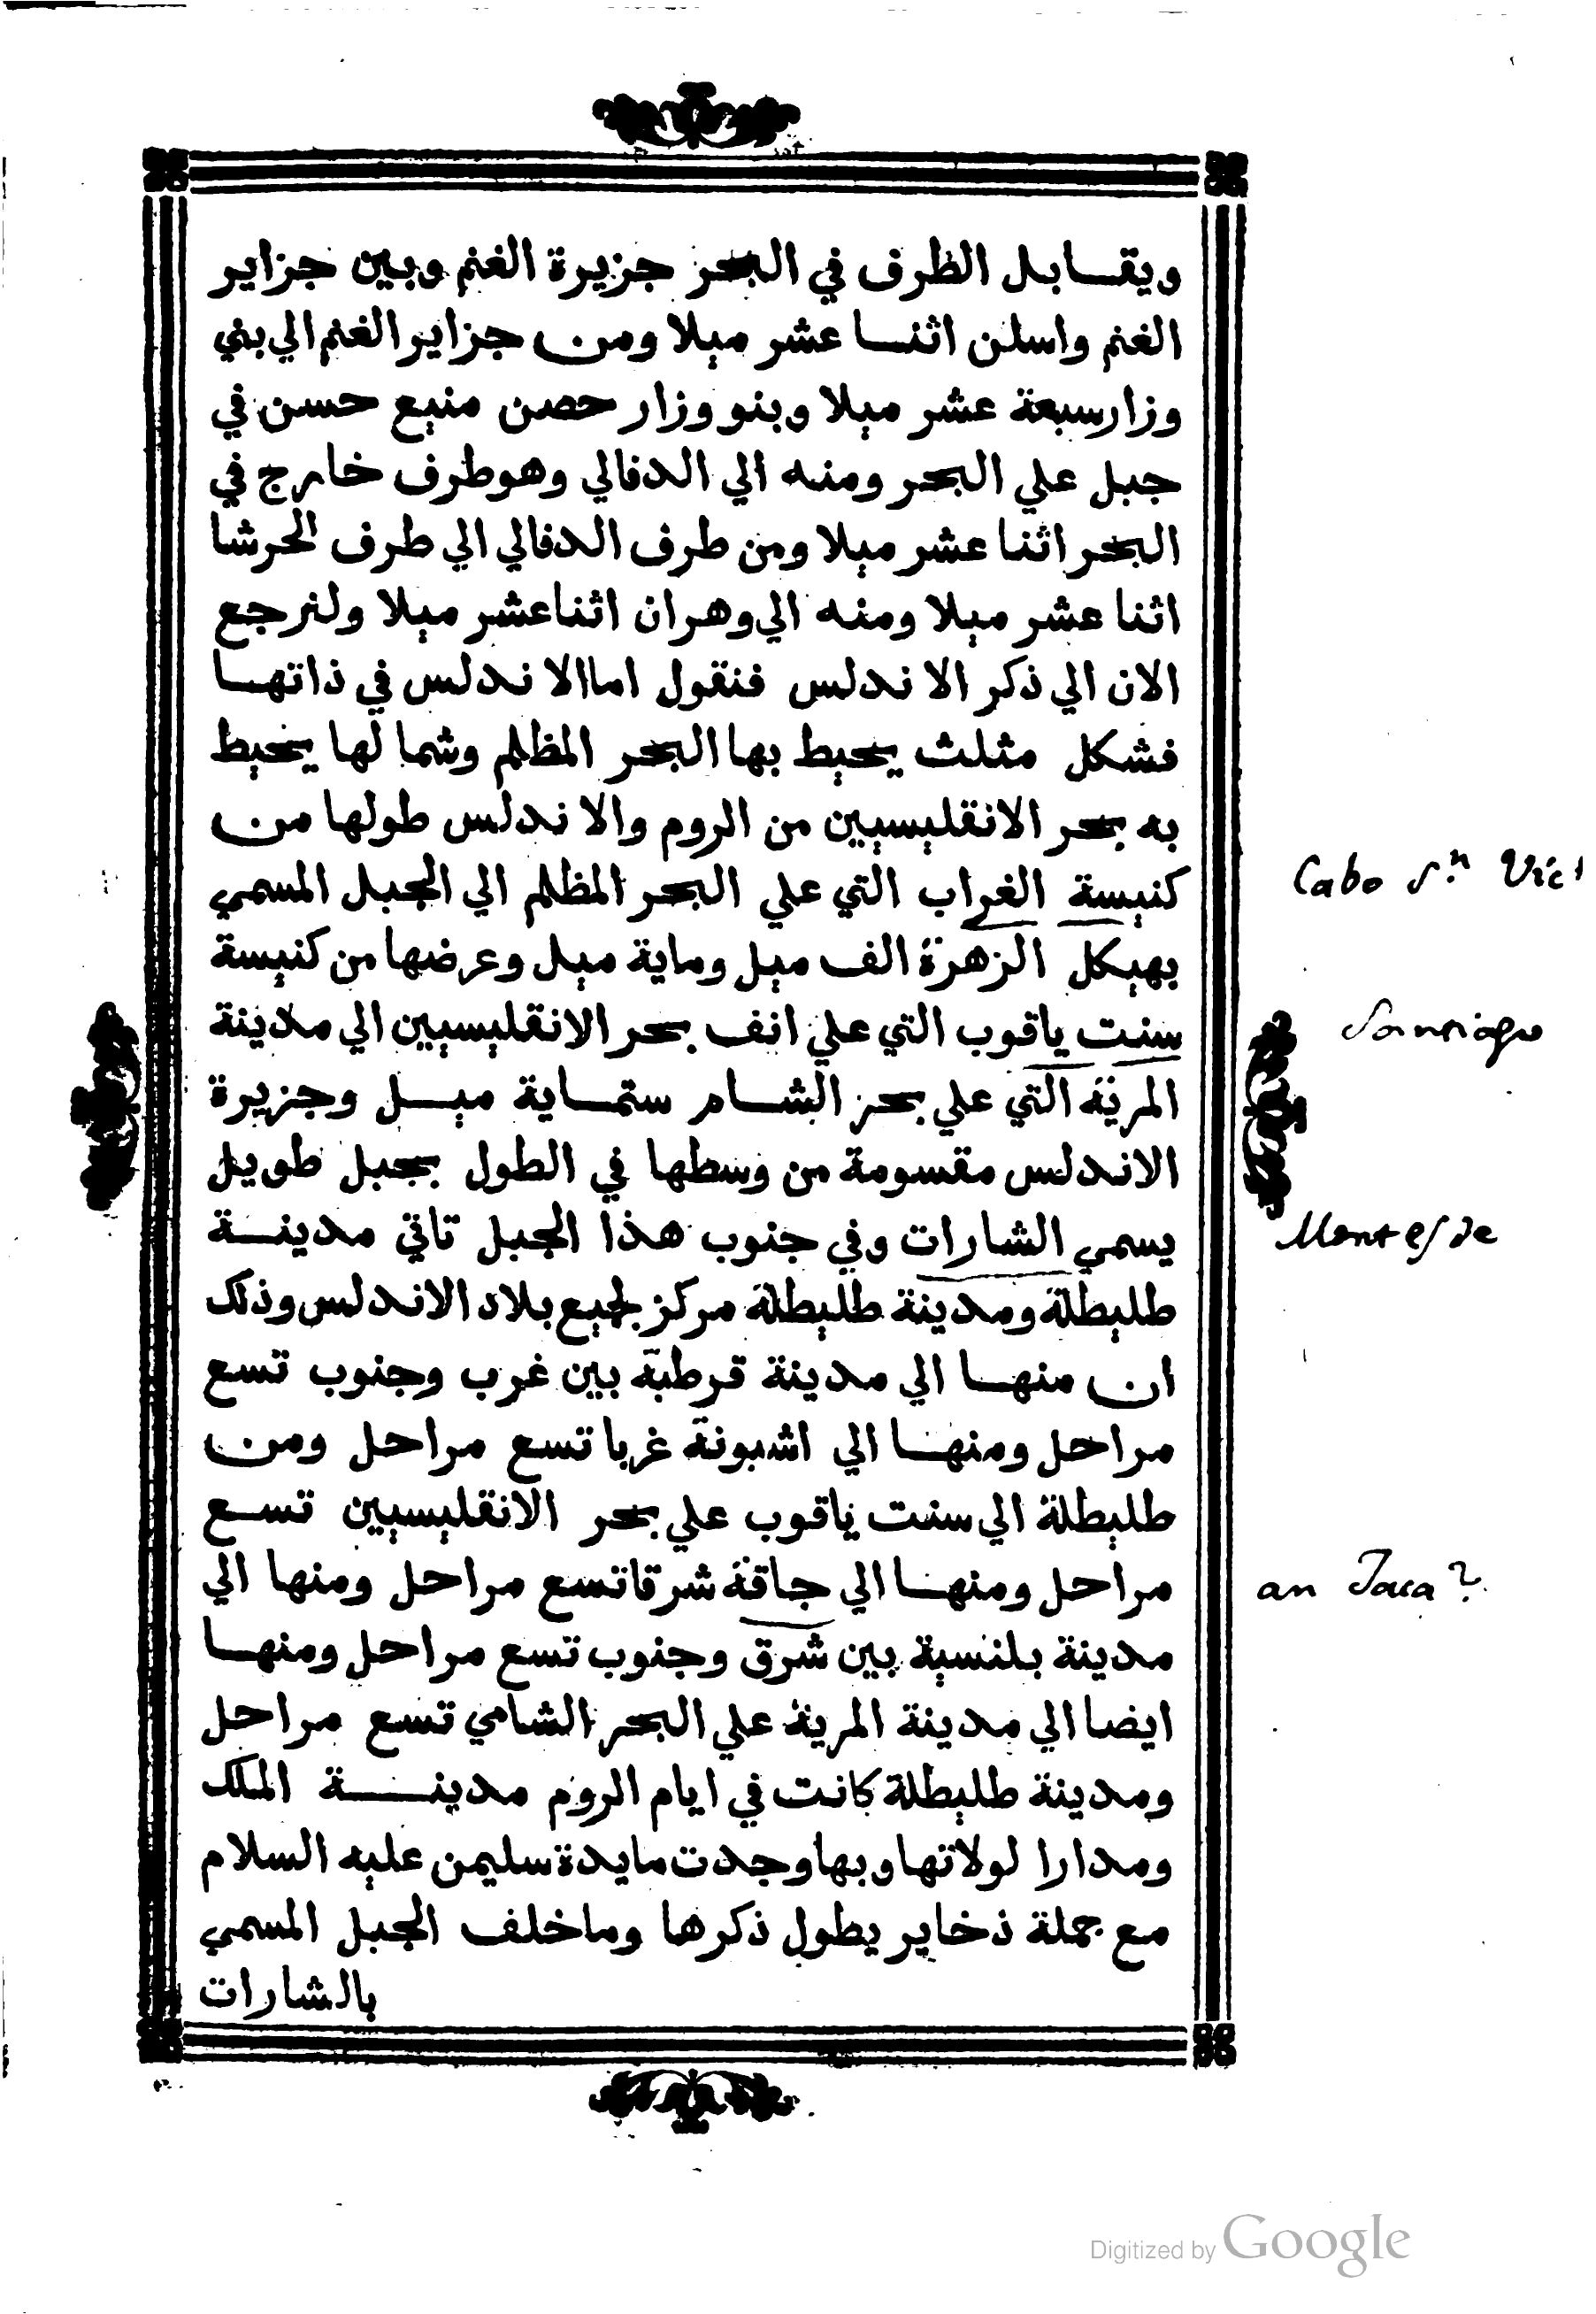 ويقابل الظرف في البحر جزيرة الغنم وبين جزاير
الغنم واسلن اثنا عشر ميلا ومن جزاير الغنم الي بني
وزار سبعة عشر ميلا وبنو وزار حصن منيع حسن في
جبل علي البحر ومنه الي الدفالي وهو طرف خارج في
البحر اثنا عشر ميلا ومن طرف الدفالي الي طرف الحرشا
اثنا عشر ميلا ومنه الي وهران اثنا عشر ميلا ولنرجع
الان الي ذكر الاندلس فنقول اما الاندلس في ذاتها
فشكل مثلث يحيط بها البحر المظلم وشمالها يحيط
به بحر الانقليسيين من الروم والاندلس طولها من
كنيسة الغراب التي علي البحر المظلم الي الجبل المسمي
بهيكل الزهرة الف ميل وماية ميل وعرضها من كنيسة
سنت ياقوب التي علي انف بحر الانقليسيين الي مدينة
المرية التي علي بحر الشام ستماية ميل وجزيرة
الاندلس مقسومة من وسطها في الطول بجبل طويل
يسمي الشارات وفي جنوب هذا الجبل تاتي مدينة
طليطلة ومدينة طليطلة مركز لجميع بلاد الاندلس وذلك
ان منها الي مدينة قرطبة بين غرب وجنوب تسع
مراحل ومنها الي اشبونة غربا تسع مراحل ومن
طليطلة الي سنت ياقوب علي بحر الانقليسيين تسع
مراحل ومنها الي جاقة شرقا تسع مراحل ومنها الي
مدينة بلنسية بين شرق وجنوب تسع مراحل ومنها
ايضا الي مدينة المرية علي البحر الشامي تسع مراحل
ومدينة طليطلة كانت في ايام الروم مدينة الملك
ومدارا لولاتها وبها وجدت مايدة سليمن عليه السلام
مع جملة ذخاير يطول ذكرها وما خلف الجبل المسمي
بالشارات
Cabo Sn. Vict
Santiago
Montes de
an Jaca?
Digitized by Google